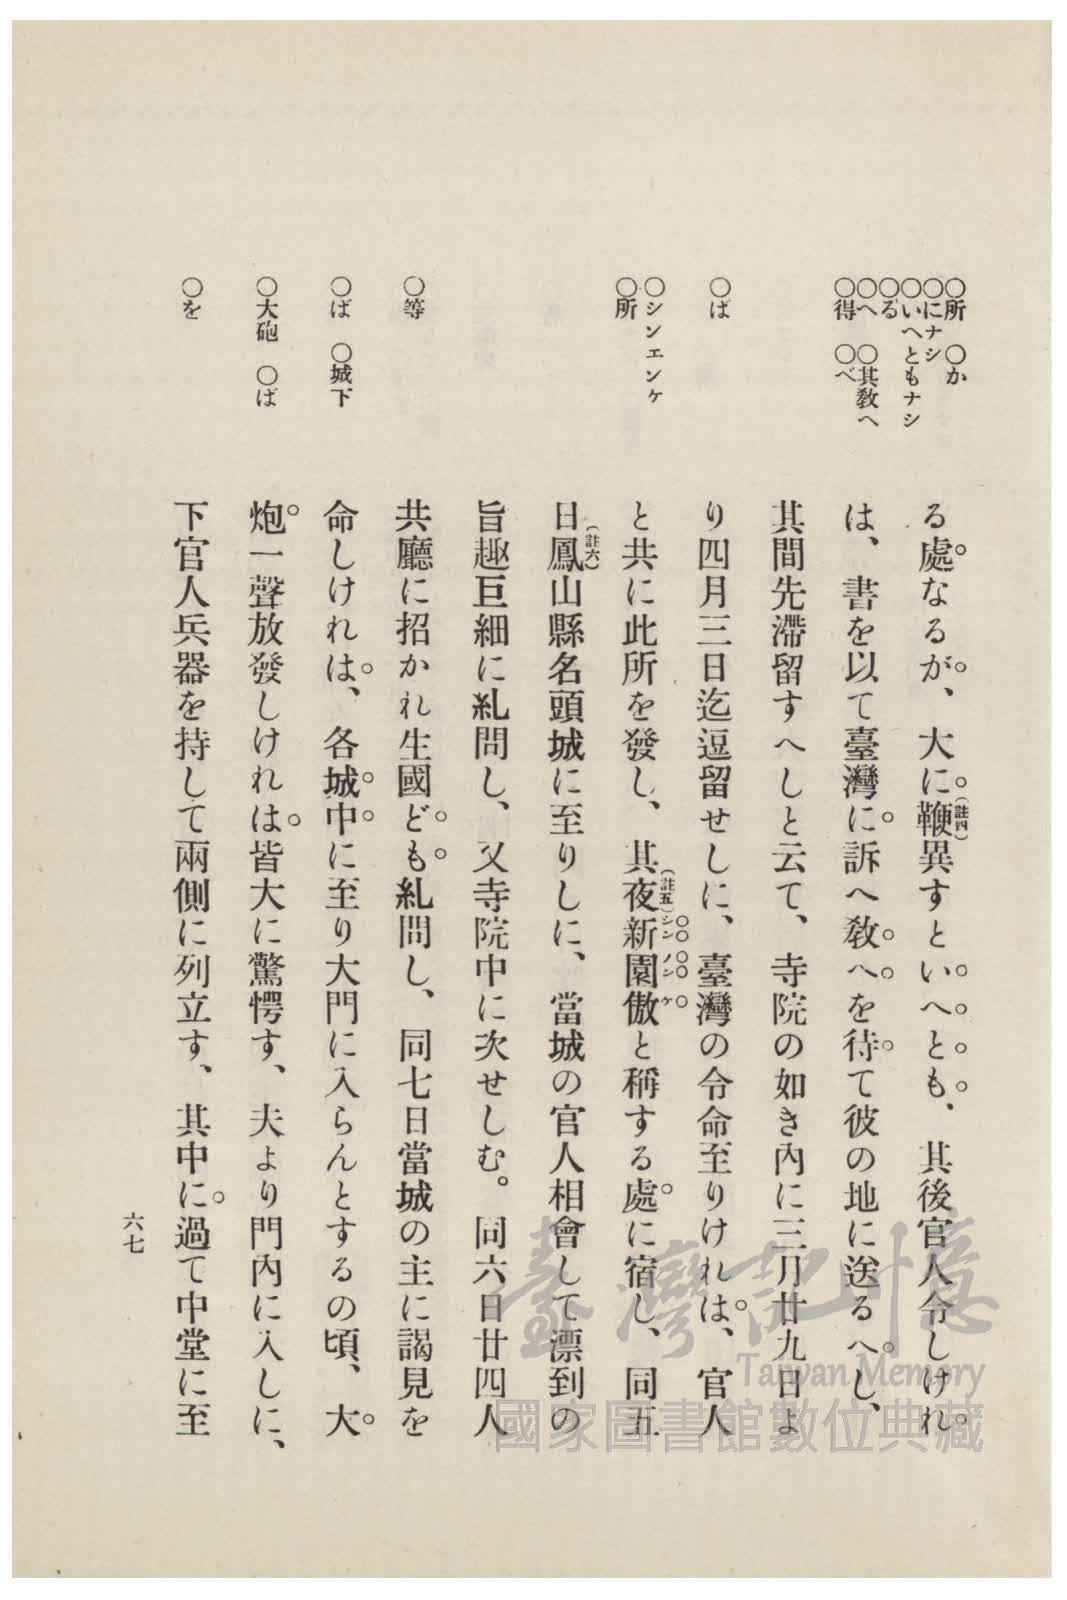 ○所　○か
○にナシ
○いへともナシ
○る
○へ　○其教へ
○得　○べ
○ば
○シンエンケ
○所
○等
○ば　○城下
○大砲　○ば
○を
る處なるが、大に鞭異すといへとも、其後官人令しけれ
（註四）
は、書を以て臺灣に訴へ教へを待て彼の地に送るへし、
其間先滯留すへしと云て、寺院の如き內に三月廿九日よ
り四月三日迄逗留せしに、臺灣の令命至りけれは、官人
と共に此所を發し、其夜新園傲と稱する處に宿し、同五
（註五）シンノンケ
日鳳山縣名頭城に至りしに、當城の官人相會して漂到の
（註六）
旨趣巨細に糺問し、又寺院中に次せしむ。同六日廿四人
共廳に招かれ生國ども糺問し、同七日當城の主に謁見を
命しけれは、各城中に至り大門に入らんとするの頃、大
炮一聲放發しけれは皆大に驚愕す、夫より門內に入しに、
下官人兵器を持して兩側に列立す、其中に過て中堂に至
六七
臺灣記憶
Taiwan Memory
國家圖書館數位典藏